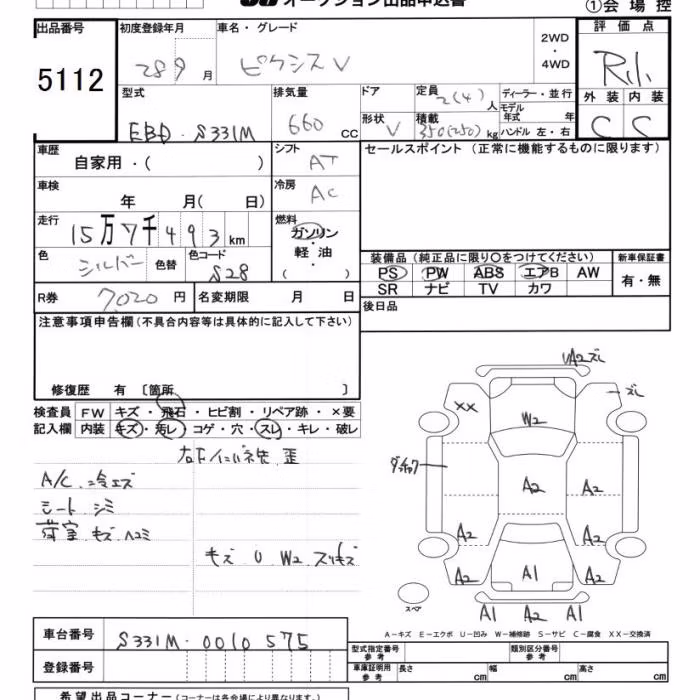 オークション出品申込書
①会場控
出品番号 初度登録年月 車名・グレード 2WD ・ 4WD 評価点
5112 28 9 月 ピクシスV R1
型式 排気量 ドア 定員 2(4) 人 ディーラー・並行 外装 内装
モデル年式 年
EBD-S331M 660 cc 形状 V 積載 350(250) kg ハンドル 左・右 C C
車歴 シフト セールスポイント (正常に機能するものに限ります)
自家用・( ) AT
車検 冷房
年 月( 日) AC
走行 燃料
15万7千493km ガソリン
・
色 色替 色コード 軽油 装備品(純正品に限り○をつけてください) 新車保証書
シルバー S28 ・
( ) PS PW ABS エアB AW 有・無
SR ナビ TV カワ
R券 7020 円 名変期限 月 日 後日品
注意事項申告欄(不具合内容等は具体的に記入して下さい)
修復歴 有 〔箇所 〕
検査員 FW キズ・飛石・ヒビ割・リペア跡・×要
記入欄 内装 キズ・汚レ・コゲ・穴・スレ・キレ・破レ
A/C 冷エズ
シート シミ
荷室 キズ ヘコミ
キズ U W2 スリキズ
UA2ズレ
ズレ
XX
W2
A2
A2
A2
A2
A2
A2
A1
A2
スペア
A1 A2 A1
A-キズ E-エクボ U-凹み W-補修跡 S-サビ C-腐食 XX-交換済
車台番号 S331M-0010575
型式指定番号 参考 類別区分番号 参考
登録番号
車庫証明用 参考 長さ cm 幅 cm 高さ cm
希望出品コーナー(コーナーは各会場により異なります。)